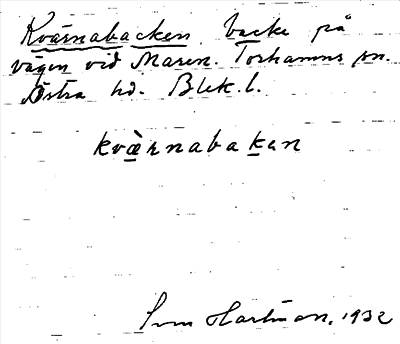 Kvärnabacken, backe på
vägen vid Maren. Torhamns sn.
Östra hd. Blek. l.
kvæ̀rnabakan
Sven Hartman, 1932